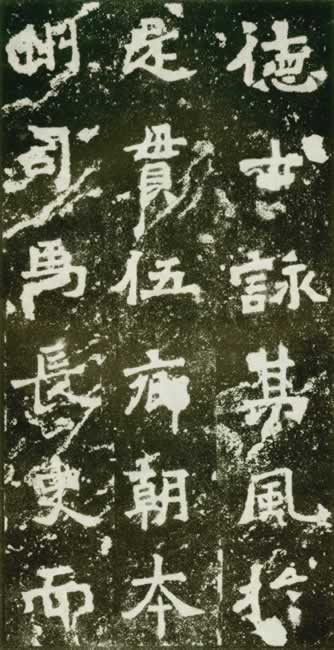 德世詠其風於
是貫伍鄉朝本
州司馬長史而